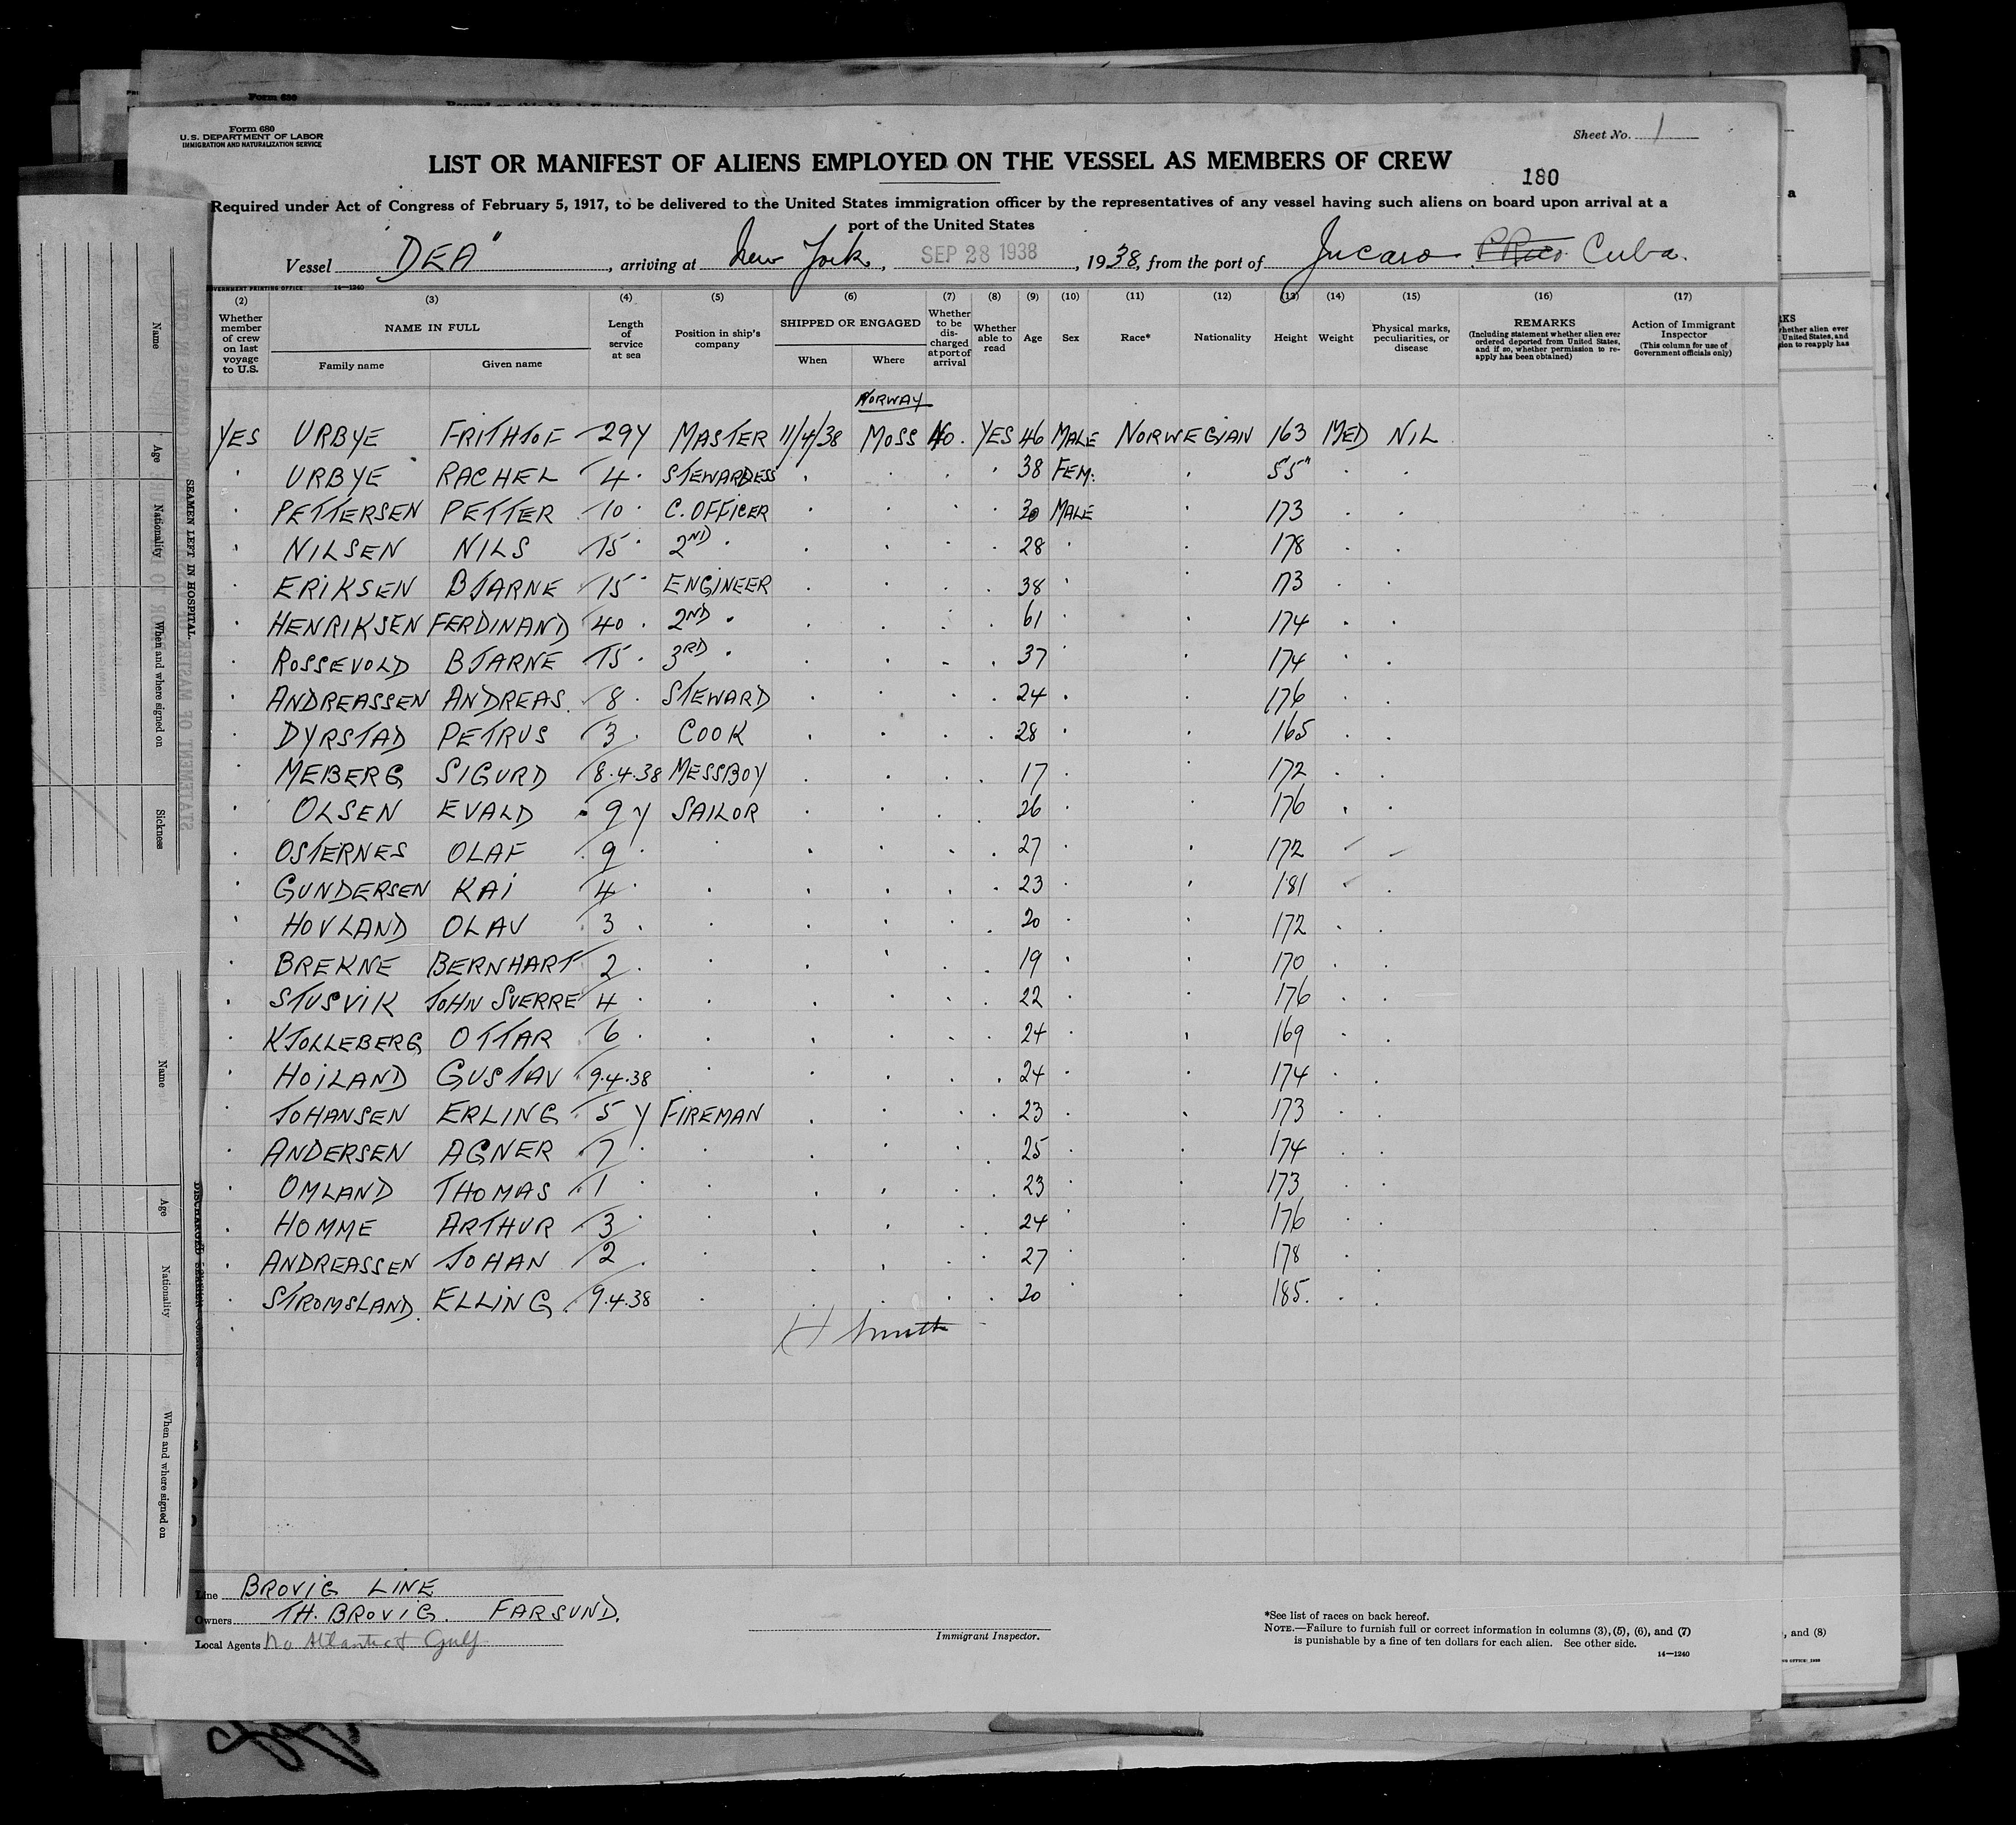 Form 680
U.S. DEPARTMENT OF LABOR
IMMIGRATION AND NATURALIZATION SERVICE
Sheet No. 1
LIST OR MANIFEST OF ALIENS EMPLOYED ON THE VESSEL AS MEMBERS OF CREW
180
Required under Act of Congress of February 5, 1917, to be delivered to the United States immigration officer by the representatives of any vessel having such aliens on board upon arrival at a
port of the United States
Vessel "DEA", arriving at New York, SEP 28 1938, 1938, from the port of Jucaro P. Rico Cuba.
(2) (3) (4) (5) (6) (7) (8) (9) (10) (11) (12) (13) (14) (15) (16) (17)
Whether member of crew on last voyage to U.S. NAME IN FULL Family name Given name Length of service at sea Position in ship's company SHIPPED OR ENGAGED When Where Whether to be discharged at port of arrival Whether able to read Age Sex Race* Nationality Height Weight Physical marks, peculiarities, or disease REMARKS (Including statement whether alien ever ordered deported from United States, and if so, whether permission to reapply has been obtained) Action of Immigrant Inspector (This column for use of Government officials only)
NORWAY
YES URBYE FRITHTOF 29Y MASTER 11/4/38 MOSS No. YES 46 MALE NORWEGIAN 163 MED NIL
URBYE RACHEL 4 STEWARDESS 38 FEM. 5'5"
PETTERSEN PETTER 10 C. OFFICER 30 MALE 173
NILSEN NILS 15 2ND 28 178
ERIKSEN BJARNE 15 ENGINEER 38 173
HENRIKSEN FERDINAND 40 2ND 61 174
ROSSEVOLD BJARNE 15 3RD 37 174
ANDREASSEN ANDREAS. 8 STEWARD 24 176
DYRSTAD PETRUS 3 COOK 28 165
MEBERG SIGURD 8.4.38 MESSBOY 17 172
OLSEN EVALD 9 y SAILOR 26 176
OSTERNES OLAF 9 27 172
GUNDERSEN KAI 4 23 181
HOVLAND OLAV 3 20 172
BREKNE BERNHART 2 19 170
STUSVIK JOHN SVERRE 4 22 176
KJOLLEBERG OTTAR 6 24 169
HOILAND GUSTAV 9.4.38 24 174
JOHANSEN ERLING 5 y FIREMAN 23 173
ANDERSEN AGNER 7 25 174
OMLAND THOMAS 1 23 173
HOMME ARTHUR 3 24 176
ANDREASSEN JOHAN 2 27 178
STROMSLAND. ELLING. 9.4.38 20 185.
H Smith
Line BROVIG LINE
Owners TH. BROVIG. FARSUND.
Local Agents No Atlantic & Gulf
Immigrant Inspector.
*See list of races on back hereof.
NOTE.—Failure to furnish full or correct information in columns (3), (5), (6), and (7)
is punishable by a fine of ten dollars for each alien. See other side.
14—1240
GOVERNMENT PRINTING OFFICE 14—1240
Name
Age
Nationality
When and where signed on
Sickness
SEAMEN LEFT IN HOSPITAL
Name
Age
Nationality
When and where signed on
, and (8)